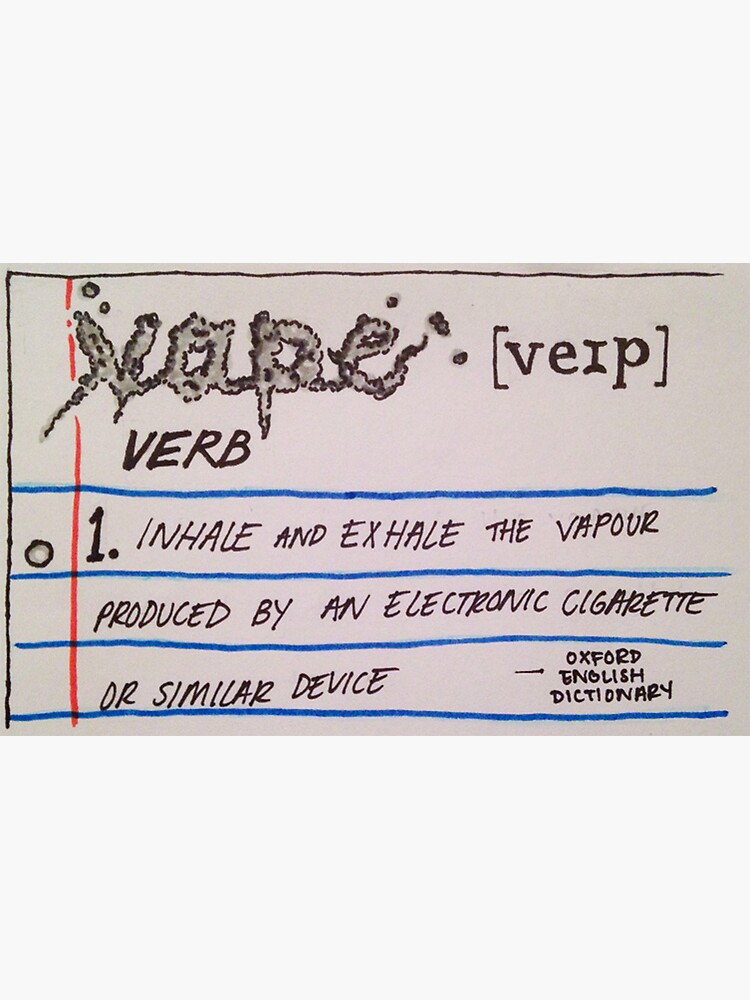 vape [veɪp]
VERB
1. INHALE AND EXHALE THE VAPOUR
PRODUCED BY AN ELECTRONIC CIGARETTE
OR SIMILAR DEVICE
— OXFORD
ENGLISH
DICTIONARY